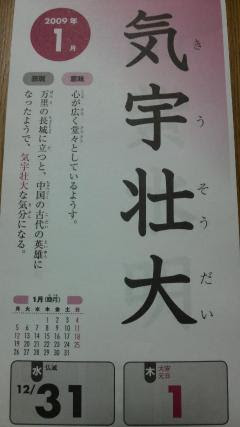 2009年
1月
気宇壮大
きうそうだい
意味
心が広く堂々としているようす。
用例
万里の長城に立つと、中国の古代の英雄に
なったようで、気宇壮大な気分になる。
月 火 水 木 金 土 日
1 2 3 4
5 6 7 8 9 10 11
12 13 14 15 16 17 18
19 20 21 22 23 24 25
26 27 28 29 30 31
水 仏滅
12/31
木 大安
元日
1